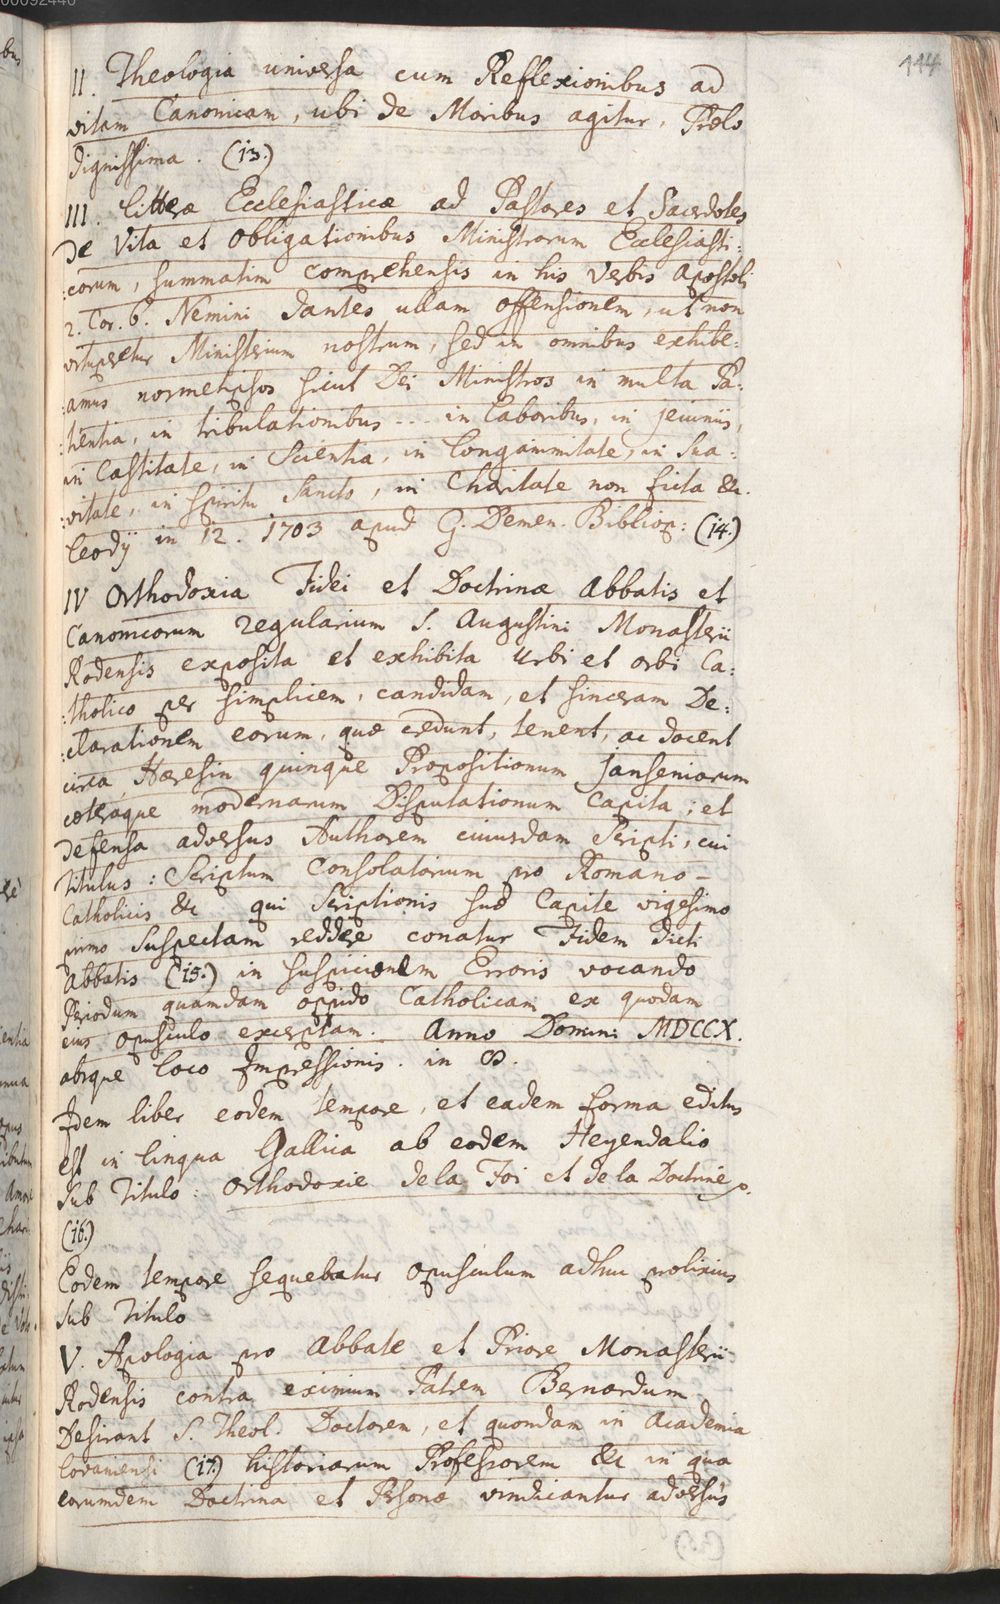 144
II. Theologia universa cum Reflexionibus ad
vitam Canonicam, ubi de Moribus agitur. Prælo
dignissima. (13.)
III. litteræ Ecclesiasticæ ad Pastores et Sacerdotes
De Vita et obligationibus Ministrorum Ecclesiasti:
:corum, summatim comprehensis in his verbis Apostoli
2. Cor. 6. Nemini dantes ullam offensionem, ut non
vituperetur Ministerium nostrum, sed in omnibus exhibe:
:amus nosmetipsos sicut Dei Ministros in multa Pa:
:tientia, in tribulationibus --- in laboribus, in jeiuniis,
in Castitate, in Scientia, in longanimitate, in sua:
:vitate, in spiritu Sancto, in Charitate non ficta &c.
leodÿ in 12. 1703 apud G. Demen. Bibliop: (14.)
IV Orthodoxia Fidei et Doctrinæ Abbatis et
Canonicorum regularium S. Augustini Monasterii
Rodensis exposita et exhibita Urbi et orbi Ca:
:tholico per simplicem, candidam, et sinceram De:
:clarationem eorum, quæ credunt, tenent, ac docent
circa Hæresin quinque Propositionum Janseniarum
cæteraque modernarum Disputationum Capita; et
defensa adversus Authorem cuiusdam Scripti, cui
titulus: Scriptum Consolatorium pro Romano-
Catholicis &c qui Scriptionis suæ Capite vigesimo
primo suspectam reddere conatur Fidem dicti
Abbatis (15.) in suspicionem Erroris vocando
Periodum quamdam oppido Catholicam ex quodam
eius opusculo excerptam. Anno Domini MDCCX.
absque loco Impressionis. in 8.
Idem liber eodem tempore, et eadem forma editus
est in lingua Gallica ab eodem Heyendalio
sub Titulo: Orthodoxie de la Foi et de la Doctrine p.
(16.)
Eodem tempore sequebatur opusculum adhuc prolixius
sub Titulo
V. Apologia pro Abbate et Priore Monasterii
Rodensis contra eximium Patrem Bernardum
Desirant S. Theol. Doctorem, et quondam in Academia
lovaniensi (17.) historiarum Professorem &c in qua
eorumdem Doctrina et Personæ vindicantur adversus